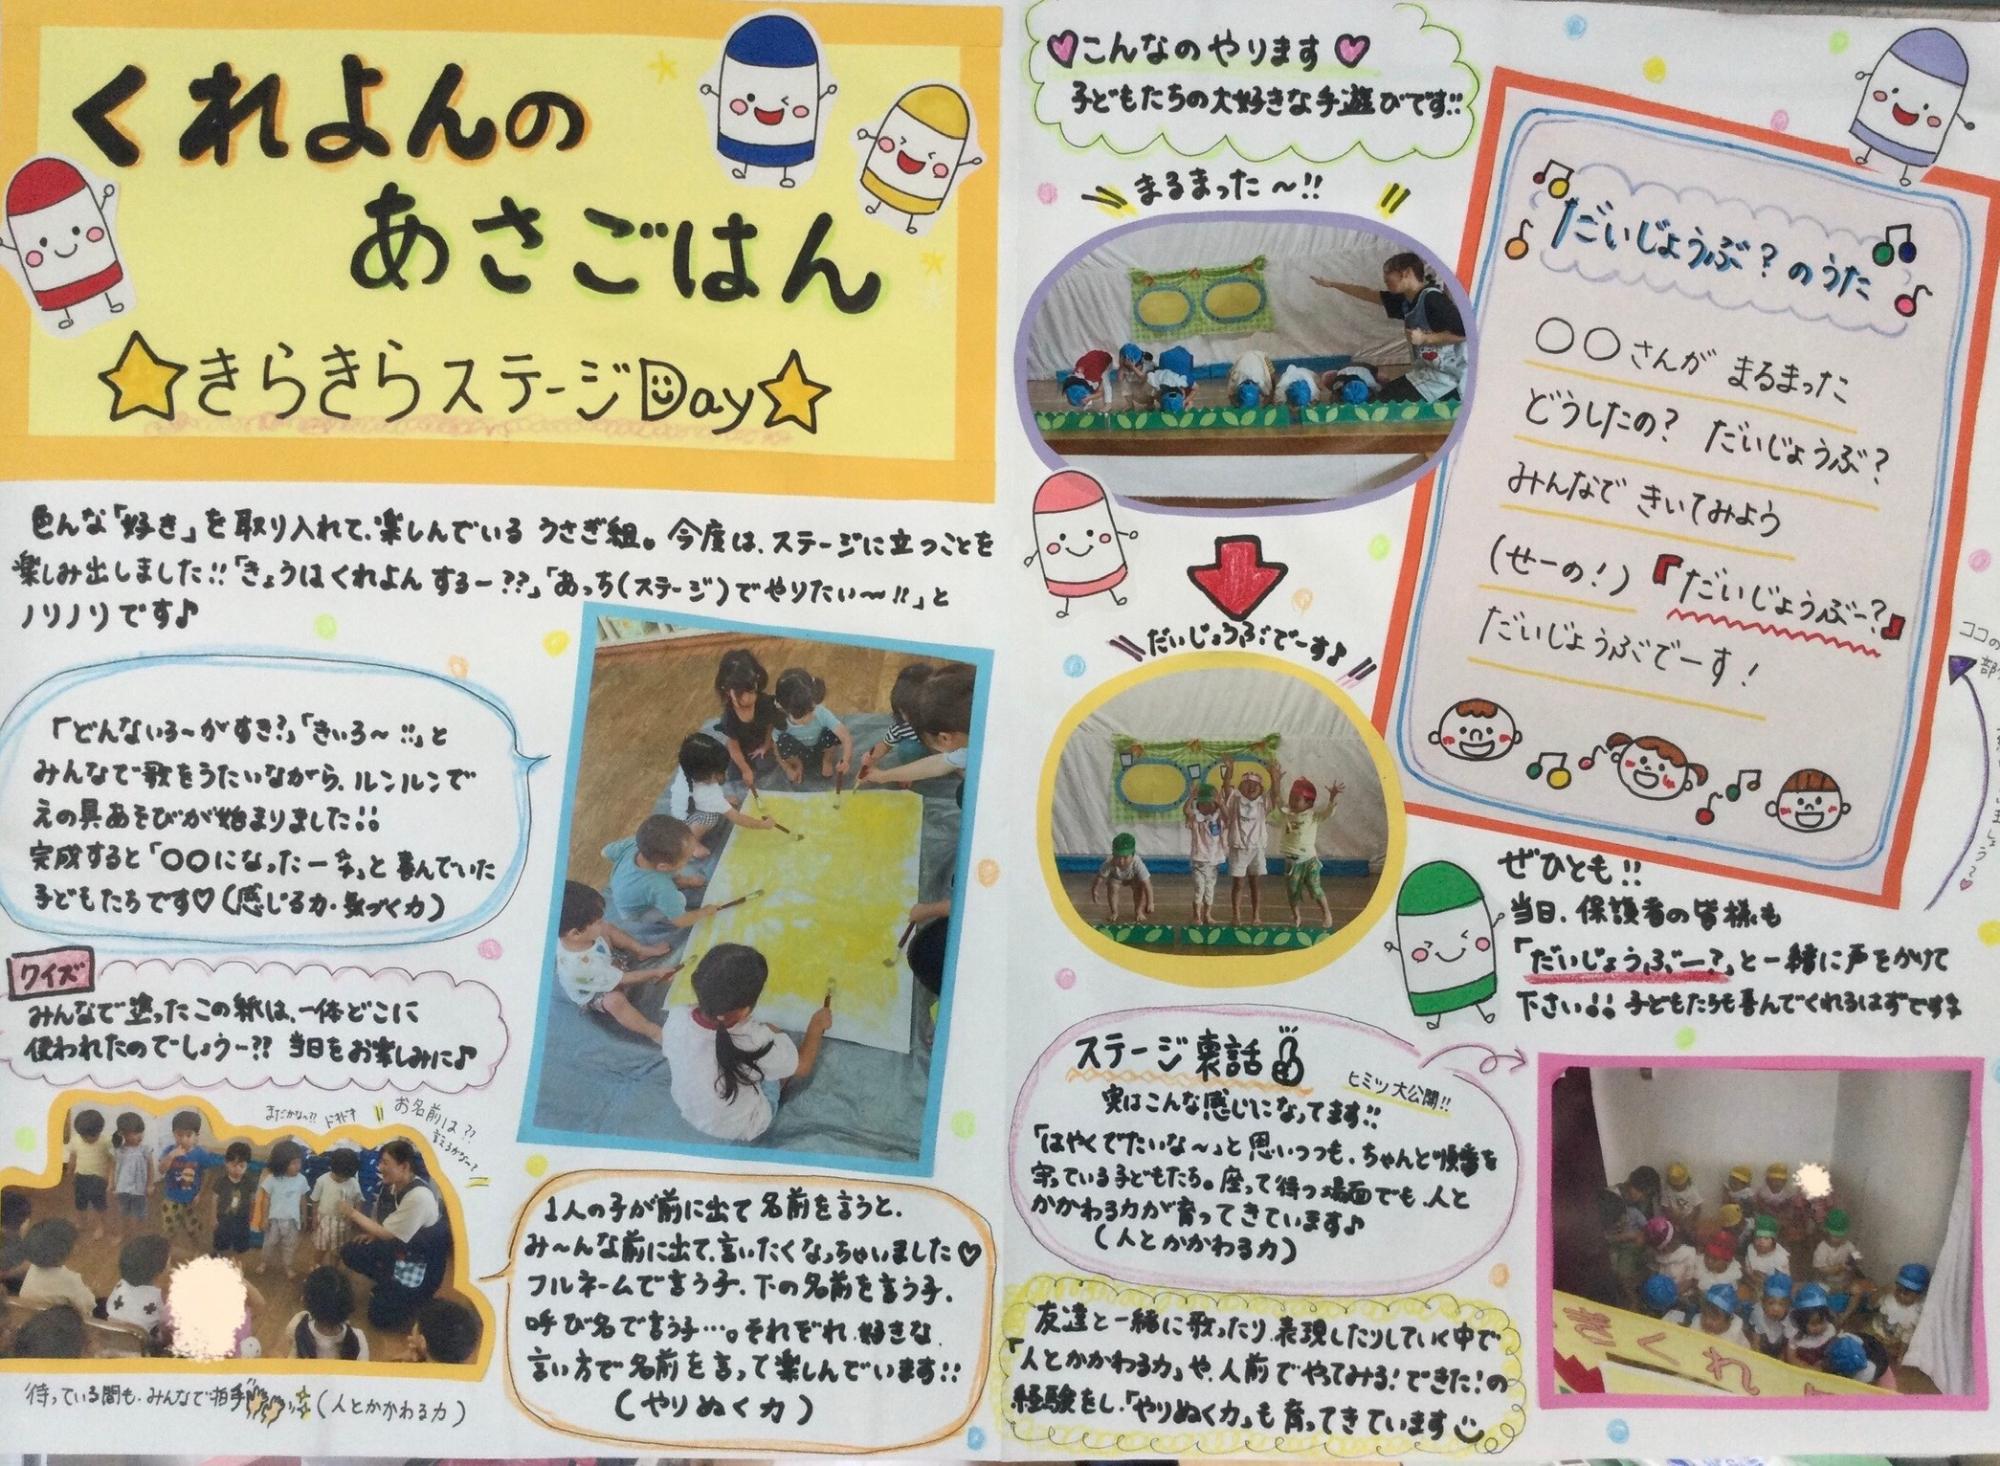 くれよんの
あさごはん
☆きらきらステージDay☆
色んな「好き」を取り入れて、楽しんでいる うさぎ組。今度は、ステージに立つことを
楽しみ出しました!!「きょうはくれよんするー??」「あっち(ステージ)でやりたい〜!!」と
ノリノリです♪
「どんないろ〜がすき?」「きいろ〜!!」と
みんなで歌をうたいながら、ルンルンで
えの具あそびが始まりました!!
完成すると「〇〇になったー!」と喜んでいた
子どもたちです♡(感じる力・気づく力)
クイズ
みんなで塗ったこの紙は、一体どこに
使われたのでしょうー?? 当日をお楽しみに♪
まだかな〜!? ドキドキ
お名前は??
言えるかなー?
待っている間も、みんなで拍手(人とかかわる力)
1人の子が前に出て名前を言うと、
み〜んな前に出て、言いたくなっちゃいました♡
フルネームで言う子、下の名前を言う子、
呼び名で言う子…。それぞれ、好きな
言い方で名前を言って楽しんでいます!!
(やりぬく力)
♡こんなのやります♡
子どもたちの大好きな手遊びです!!
まるまった〜!!
だいじょうぶでーす♪
だいじょうぶ?のうた
〇〇さんが まるまった
どうしたの? だいじょうぶ?
みんなで きいてみよう
(せーの!)『だいじょうぶー?』
だいじょうぶでーす!
ココの
ぜひとも!!
当日、保護者の皆様も
「だいじょうぶー?」と一緒に声をかけて
下さい!! 子どもたちも喜んでくれるはずです
ステージ裏話
ヒミツ大公開!!
実はこんな感じになってます!!
「はやくでたいな〜」と思いつつも、ちゃんと順番を
守っている子どもたち。座って待つ場面でも、人と
かかわる力が育ってきています♪
(人とかかわる力)
友達と一緒に歌ったり、表現したりしていく中で
「人とかかわる力」や、人前でやってみる!できた!の
経験をし、「やりぬく力」も育ってきています
くれ